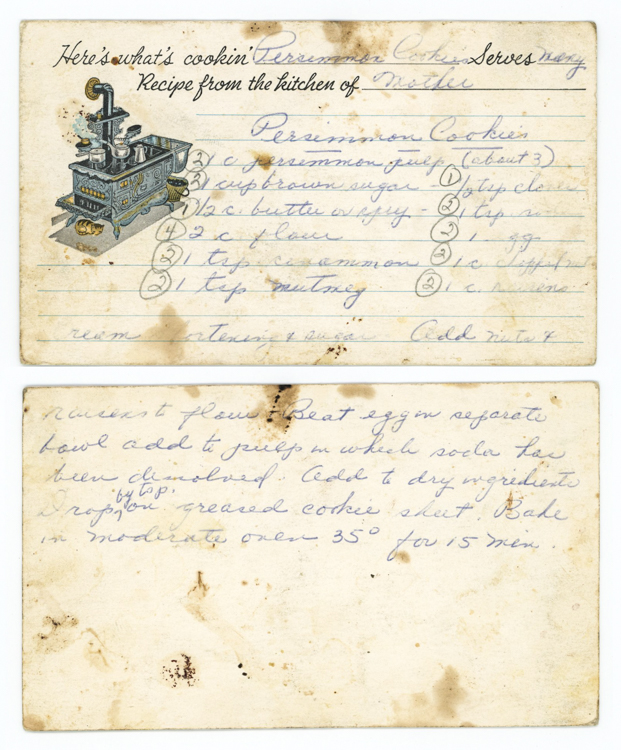 Here's what's cookin' Persimmon Cookies Serves many
Recipe from the kitchen of Mother
Persimmon Cookies
② 1 c persimmon pulp (about 3)
② 1 cup brown sugar - ① 1/2 tsp clove
① 1/2 c. butter or - ② 1 tsp
④ 2 c flour ② 1 egg
② 1 tsp cinnammon ② 1 c
② 1 tsp nutmeg ② 1 c. raisens
ream ortening & sugar Add nuts &
raisens to flour + Beat egg in separate
bowl add to pulp in which soda has
been dissolved. Add to dry ingredients
Drop by tsp. on greased cookie sheet. Bake
in moderate oven 35° for 15 min.